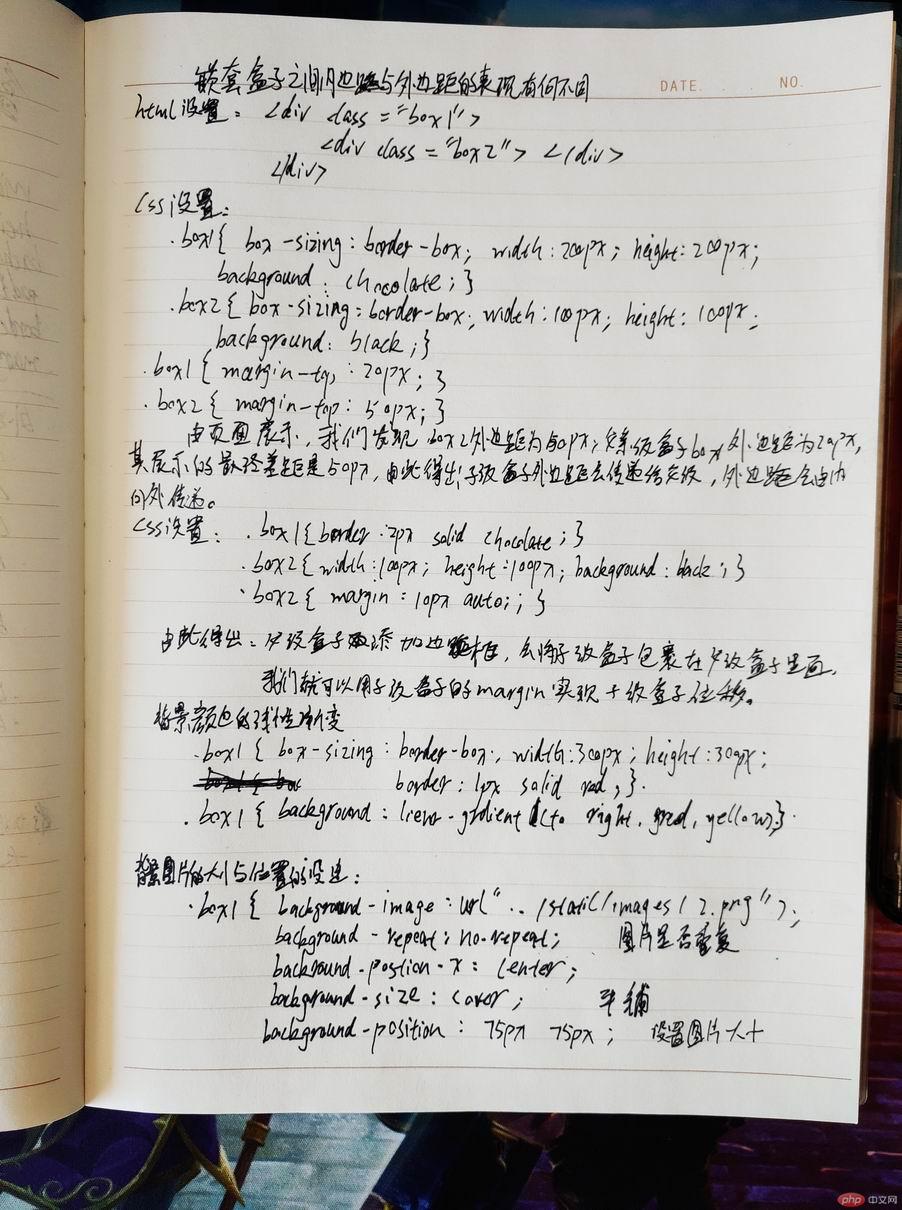 嵌套盒子之间内边距与外边距的表现有何不同
DATE. NO.
html设置: <div class="box1">
<div class="box2"> </div>
</div>
Css设置:
.box1{ box-sizing: border-box; width:200px; height:200px;
background: chocolate; }
.box2{ box-sizing: border-box; width:100px; height: 100px;
background: black; }
.box1{ margin-top: 20px; }
.box2{ margin-top: 50px; }
由页面展示,我们发现 box2外边距为50px,父级盒子box外边距为20px,
其展示的最终差距是50px,由此得出:子级盒子外边距会传递给父级,外边距会由内
向外传递。
Css设置: .box1{border:2px solid chocolate; }
.box2{width:100px; height:100px; background: back; }
.box2{ margin: 10px auto;; }
由此得出:父级盒子添加边框,会将子级盒子包裹在父级盒子里面,
我们就可以用子级盒子的margin实现子级盒子位移。
背景颜色的线性渐变
.box1{ box-sizing: border-box; width:300px; height:300px;
border: 1px solid red; }.
.box1{ background: liear-grdient (to right, gred, yellow);}.
背景图片的大小与位置的设定:
.box1{ background-image: url"../static/images/2.png");
background-repeat: no-repeat; 图片是否重复
background-postion-x: center;
background-size: cover; 平铺
background-position: 75px 75px; 设置图片大小
php 中文网